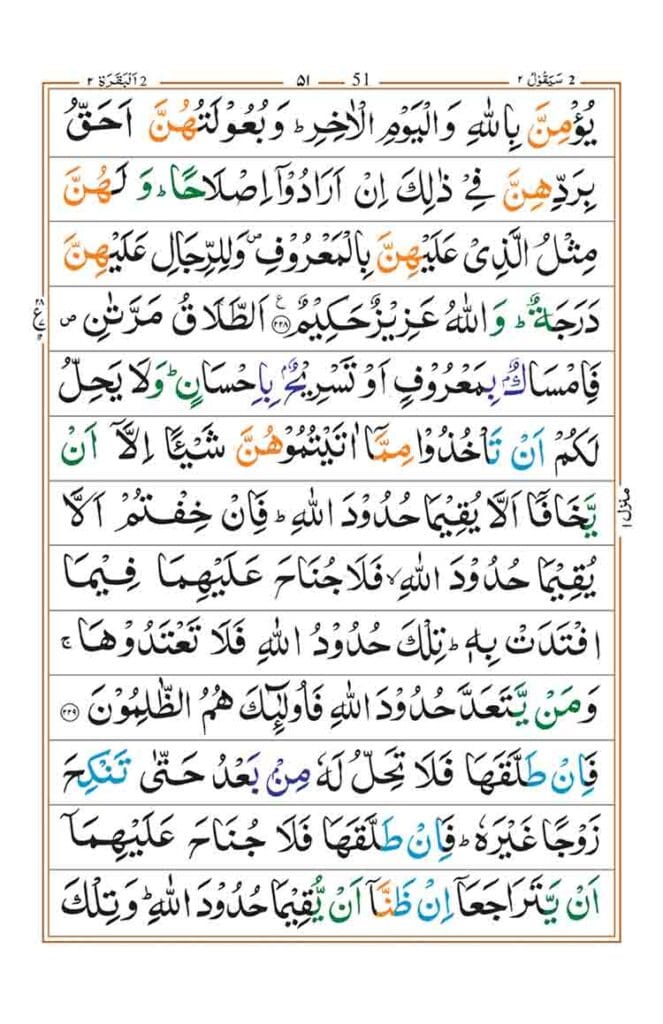 2 سَيَقُوْلُ ٢ 51 ٥١ 2 اَلْبَقَرَة ٢
يُؤْمِنَّ بِاللّٰهِ وَالْيَوْمِ الْاٰخِرِ ؕ وَبُعُوْلَتُهُنَّ اَحَقُّ
بِرَدِّهِنَّ فِيْ ذٰلِكَ اِنْ اَرَادُوْۤا اِصْلَاحًا ؕ وَلَهُنَّ
مِثْلُ الَّذِيْ عَلَيْهِنَّ بِالْمَعْرُوْفِ ۪ وَلِلرِّجَالِ عَلَيْهِنَّ
دَرَجَةٌ ؕ وَاللّٰهُ عَزِيْزٌ حَكِيْمٌ ﴿٢٢٨﴾ ع اَلطَّلَاقُ مَرَّتٰنِ ص
فَاِمْسَاكٌۢ بِمَعْرُوْفٍ اَوْ تَسْرِيْحٌۢ بِاِحْسَانٍ ؕ وَلَا يَحِلُّ
لَكُمْ اَنْ تَاْخُذُوْا مِمَّاۤ اٰتَيْتُمُوْهُنَّ شَيْـًٔا اِلَّاۤ اَنْ
يَّخَافَاۤ اَلَّا يُقِيْمَا حُدُوْدَ اللّٰهِ ؕ فَاِنْ خِفْتُمْ اَلَّا
منزل ١
يُقِيْمَا حُدُوْدَ اللّٰهِ ۙ فَلَا جُنَاحَ عَلَيْهِمَا فِيْمَا
افْتَدَتْ بِهٖ ؕ تِلْكَ حُدُوْدُ اللّٰهِ فَلَا تَعْتَدُوْهَا ج
وَمَنْ يَّتَعَدَّ حُدُوْدَ اللّٰهِ فَاُولٰٓئِكَ هُمُ الظّٰلِمُوْنَ ﴿٢٢٩﴾
فَاِنْ طَلَّقَهَا فَلَا تَحِلُّ لَهٗ مِنْۢ بَعْدُ حَتّٰى تَنْكِحَ
زَوْجًا غَيْرَهٗ ؕ فَاِنْ طَلَّقَهَا فَلَا جُنَاحَ عَلَيْهِمَاۤ
اَنْ يَّتَرَاجَعَاۤ اِنْ ظَنَّاۤ اَنْ يُّقِيْمَا حُدُوْدَ اللّٰهِ ؕ وَتِلْكَ